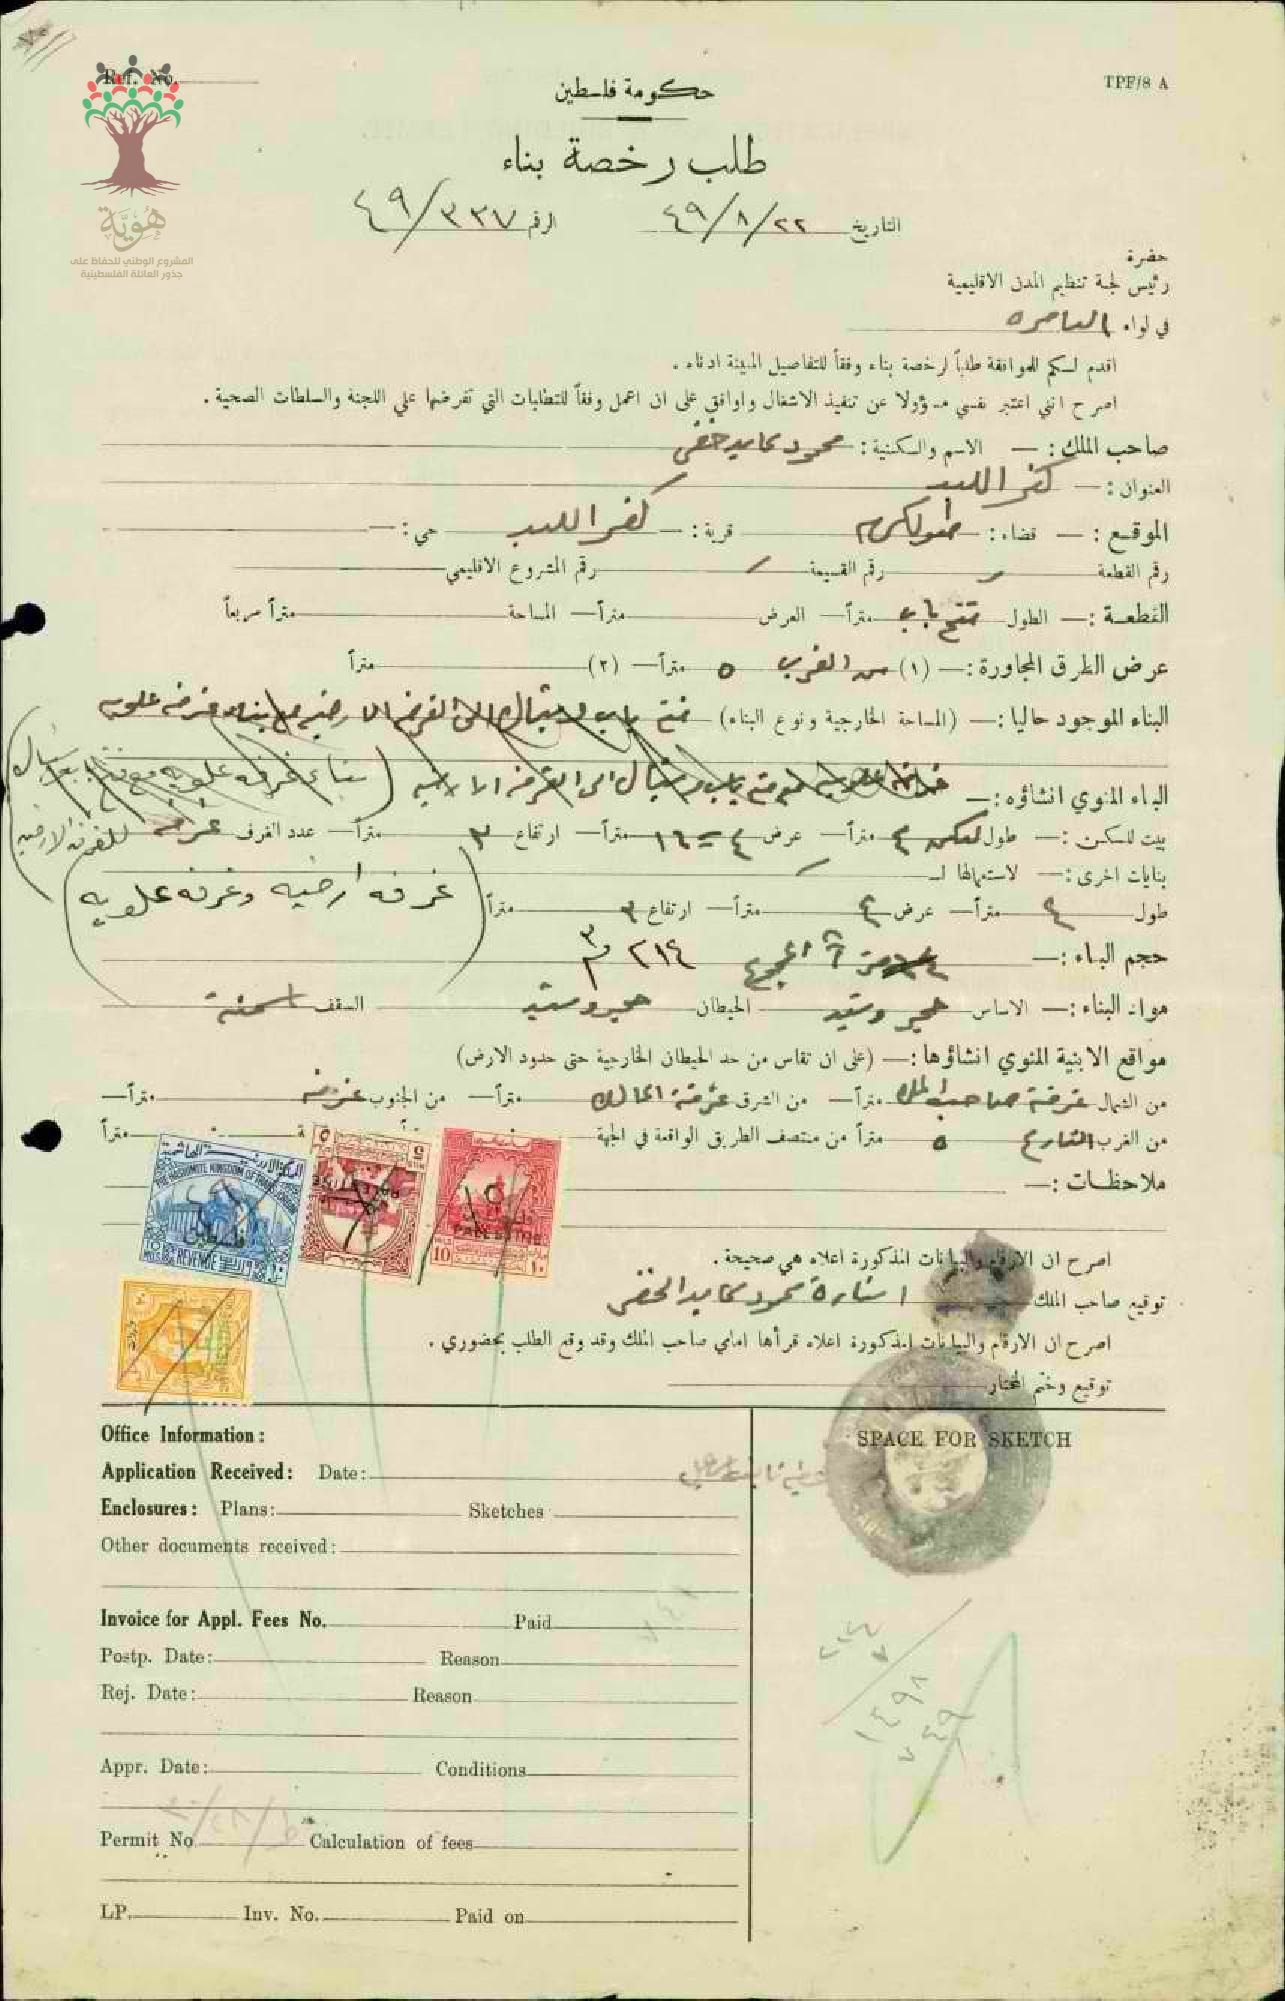 Ref. No.
TPF/8 A
هُوِيَّة
المشروع الوطني للحفاظ على
جذور العائلة الفلسطينية
حكومة فلسطين
طلب رخصة بناء
التاريخ ٤٩/٨/٢٢ الرقم ٤٩/٣٣٧
حضرة
رئيس لجنة تنظيم المدن الاقليمية
في لواء الناصرة
اقدم لكم للموافقة طلباً لرخصة بناء وفقاً للتفاصيل المبينة ادناه .
اصرح انني اعتبر نفسي مسؤولا عن تنفيذ الاشغال واوافق على ان اعمل وفقاً للتطلبات التي تفرضها علي اللجنة والسلطات الصحية .
صاحب الملك : — الاسم والكنية : محمود عابد
العنوان : — كفر اللبد
الموقع : — قضاء : طولكرم قرية : — كفر اللبد حي : —
رقم القطعة رقم القسيمة رقم المشروع الاقليمي
القطعة : — الطول فتح باب متراً — العرض متراً — المساحة متراً مربعاً
عرض الطرق المجاورة : — (١) من الغرب ٥ متراً — (٢) متراً
البناء الموجود حاليا : — (المساحة الخارجية ونوع البناء) فتح باب وشباك الى الغرفة الارضية مع بناء غرفة علوية
البناء المنوي انشاؤه : — فتح باب وشباك الى الغرفة الارضية (بناء غرفة علوية مع فتح باب
بيت للسكن : — طول ٤ متراً — عرض ٤ = ١٦ متراً — ارتفاع ٣ متراً — عدد الغرف غرفة للغرفة الارضية
بنايات اخرى : — لاستعمالها لـ
(غرفة ارضية وغرفة علوية)
طول ٤ متراً — عرض ٤ متراً — ارتفاع ٣ متراً
حجم البناء : — ٢١٤ م٣
مواد البناء : — الاساس حجر وشيد الحيطان حجر وشيد السقف اسمنت
مواقع الابنية المنوي انشاؤها : — (على ان تقاس من حد الحيطان الخارجية حتى حدود الارض)
من الشمال غرفة صاحب الملك متراً — من الشرق غرفة المالك متراً — من الجنوب غرفة متراً —
من الغرب الشارع ٥ متراً من منتصف الطريق الواقعة في الجهة متراً
ملاحظات : —
المملكة الاردنية الهاشمية
THE HASHEMITE KINGDOM OF
فلسطين
REVENUE
PALESTINE
10 ١٠
اصرح ان الارقام والبيانات المذكورة اعلاه هي صحيحة .
توقيع صاحب الملك اشارة محمود عابد
اصرح ان الارقام والبيانات المذكورة اعلاه قرأها امامي صاحب الملك وقد وقع الطلب بحضوري .
توقيع وختم المختار
Office Information :
Application Received : Date :
Enclosures : Plans : Sketches
Other documents received :
Invoice for Appl. Fees No. Paid
Postp. Date : Reason
Rej. Date : Reason
Appr. Date : Conditions
Permit No Calculation of fees
LP. Inv. No. Paid on
SPACE FOR SKETCH
٢١٤
٧
١٤٩٨